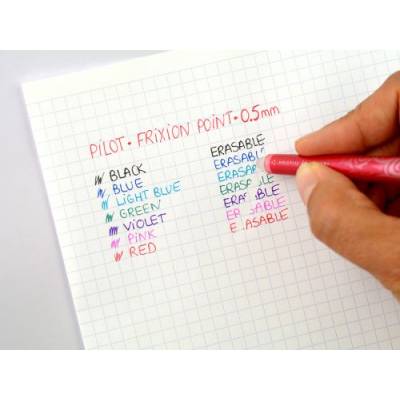 PiLOT • FRiXiON POiNT • 0.5mm
BLACK
BLUE
LIGHT BLUE
GREEN
ViOLET
PiNK
RED
ERASABLE
ERASABL
ERASAB
ERASA LE
ERA ABLE
ER SABLE
E ASABLE